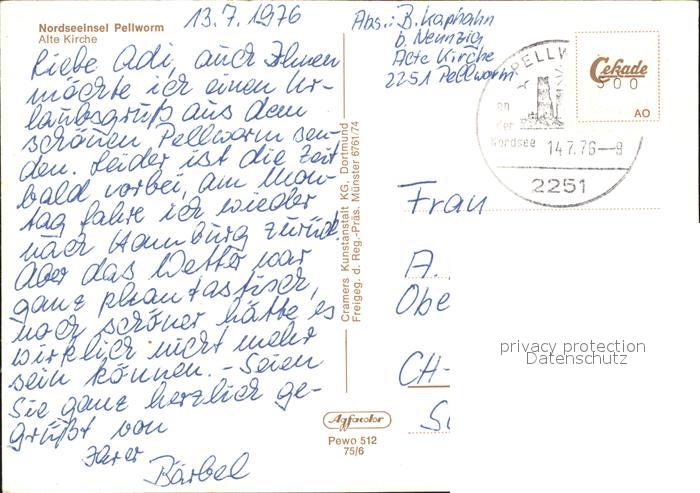 Nordseeinsel Pellworm
Alte Kirche
13.7.1976
Liebe Adi, auch Ihnen
möchte ich einen Ur-
laubsgruß aus dem
schönen Pellworm sen-
den. Leider ist die Zeit
bald vorbei, am Mon-
tag fahre ich wieder
nach Hamburg zurück.
Aber das Wetter war
ganz phantastisch,
noch schöner hätte es
wirklich nicht mehr
sein können. - Seien
Sie ganz herzlich ge-
grüßt von
Ihrer
Bärbel
Cramers Kunstanstalt KG, Dortmund
Freigeg. d. Reg.-Präs. Münster 6761/74
Agfacolor
Pewo 512
75/6
Abs.: B. Kaphahn
b. Neunzig
Alte Kirche
2251 Pellworm
PELLW
an
der
Nordsee
14.7.76-8
2251
Cekade
500
AO
Frau
A.
Obe
CH-
privacy protection
Datenschutz